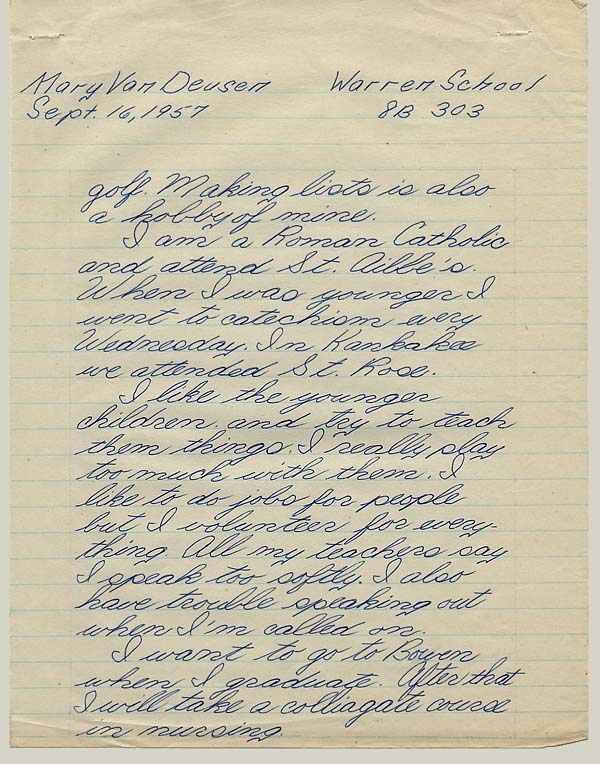 Mary Van Deusen Warren School
Sept. 16, 1957 8B 303
golf. Making lists is also
a hobby of mine.
I am a Roman Catholic
and attend St. Ailbe's.
When I was younger I
went to catechism every
Wednesday. In Kankakee
we attended St. Rose.
I like the younger
children and try to teach
them things. I really play
too much with them. I
like to do jobs for people
but I volunteer for every-
thing. All my teachers say
I speak too softly. I also
have trouble speaking out
when I'm called on.
I want to go to Bowen
when I graduate. After that
I will take a colliagate course
in nursing.